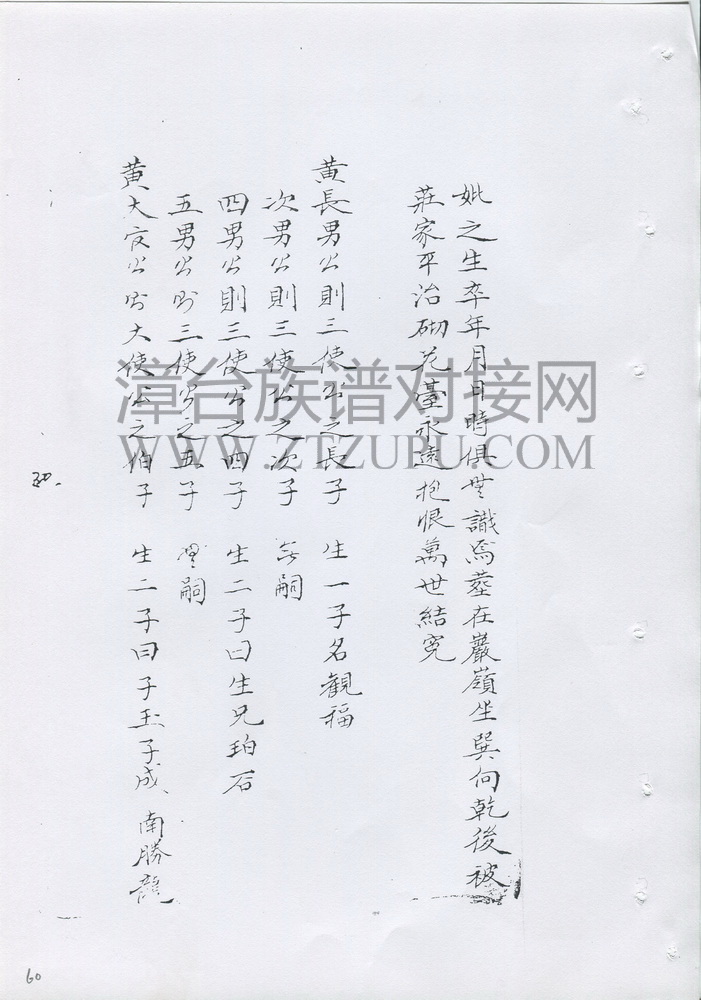 妣之生卒年月日時俱無識焉葬在巖嶺坐巽向乾後被
莊家平治砌花臺永遠抱恨萬世結冤
黃長男公則三使公之長子 生一子名觀福
次男公則三使公之次子 無嗣
四男公則三使公之四子 生二子曰生兄珀石
五男公則三使公之五子 無嗣
黃大公則大使公之伯子 生二子曰子玉子成 南勝龍
30.
60
漳台族谱对接网
WWW.ZTZUPU.COM